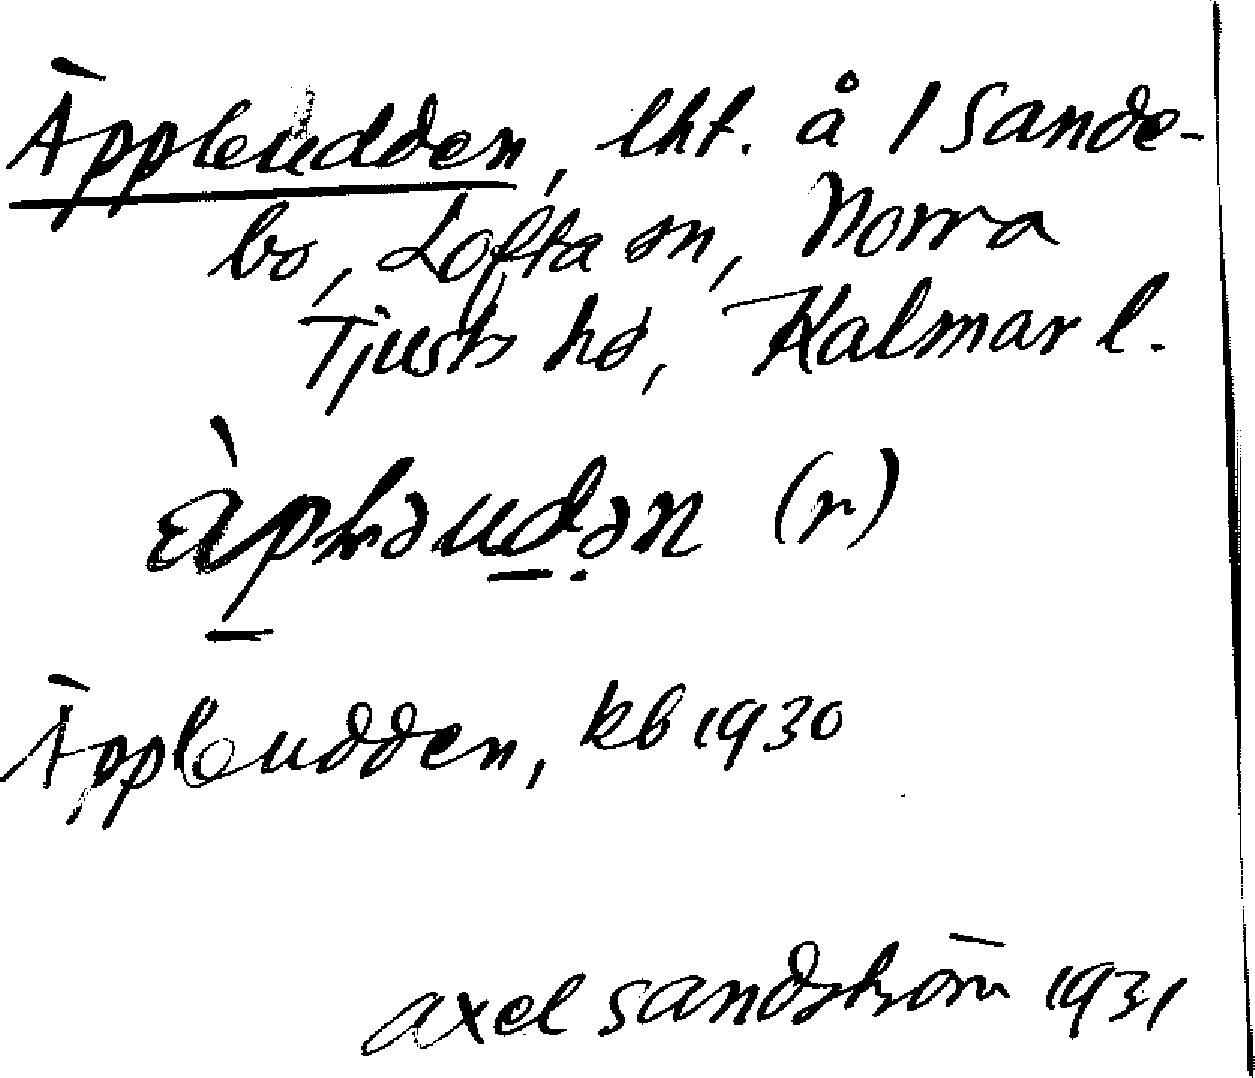 Äppleudden, lht. å 1 Sande-
bo, Lofta sn, Norra
Tjusts hd, Kalmar l.
(r)
Äppleudden, kb 1930
Axel Sandström 1931